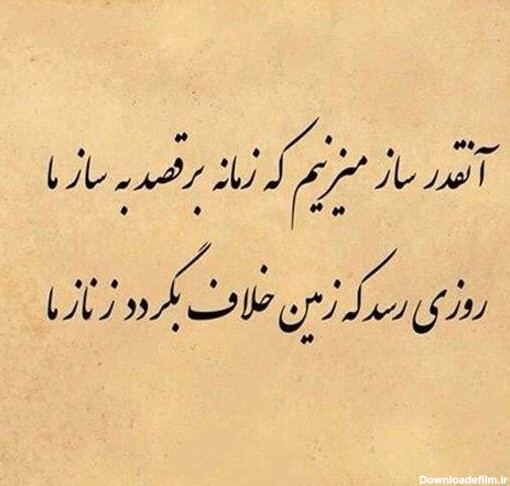 آنقدر ساز میزنیم که زمانه برقصد به ساز ما
روزی رسد که زمین خلاف بگردد ز ناز ما
Downloadefilm.ir